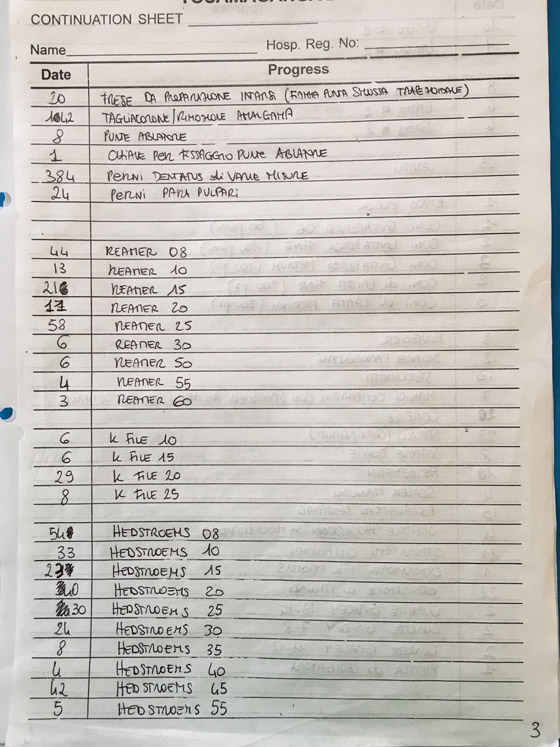 CONTINUATION SHEET
Name Hosp. Reg. No:
Date Progress
20 FRESE DA PREPARAZIONE INTARSI (FIAMMA PUNTA SMUSSA TRAPEZOIDALE)
TAGLIACORONE/RIMOZIONE AMALGAMA
8 PUNTE ABLATORE
1 CHIAVE PER FISSAGGIO PUNTE ABLATORE
384 PERNI DENTATUS di VARIE MISURE
24 PERNI PARA PULPARI
44 REAMER 08
13 REAMER 10
216 REAMER 15
17 REAMER 20
58 REAMER 25
6 REAMER 30
6 REAMER 50
4 REAMER 55
3 REAMER 60
6 K FILE 10
6 K FILE 15
29 K FILE 20
8 K FILE 25
HEDSTROEMS 08
33 HEDSTROEMS 10
HEDSTROEMS 15
HEDSTROEMS 20
30 HEDSTROEMS 25
24 HEDSTROEMS 30
8 HEDSTROEMS 35
4 HEDSTROEMS 40
42 HEDSTROEMS 45
5 HEDSTROEMS 55
3